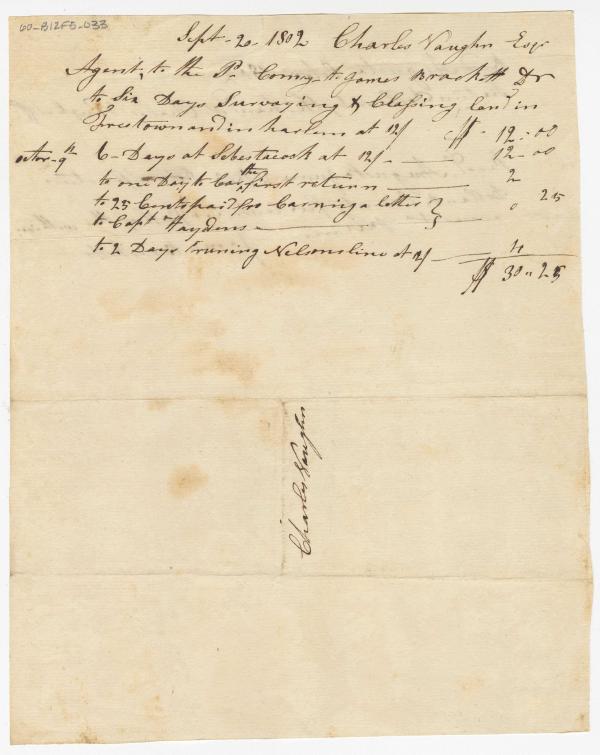 60-B12F5-033
Sept- 20- 1802 Charles Vaughn Esqr
Agent to the P. Comy to James Brackett Dr
to Six Days Surveying & Classing land in
Freetown and in harlem at 12/ $ - 12-00
octor- 9th 6- Days at Sebesticook at 12/ - 12-00
to one Day to Car the first return 2
to 25 Cents paid for Carring a letter } 0 25
to Capt Haydens
to 2 Days runing Nelsons line at 12/ 4
$ 30 " 25
Charles Vaughn